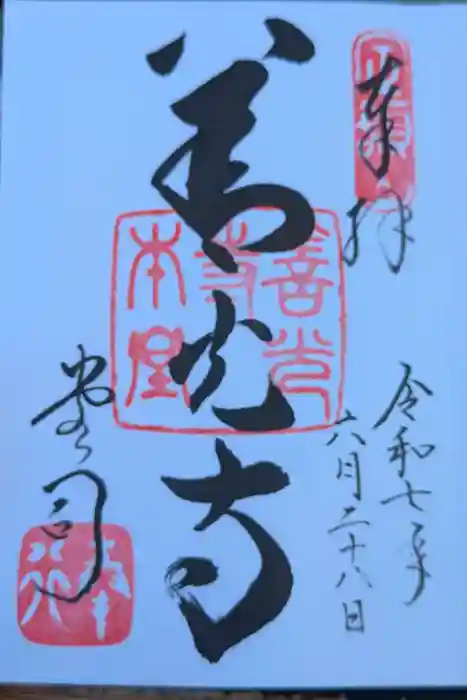 奉拝
令和七年
六月二十八日
善光寺
善光
寺
本堂
堂司